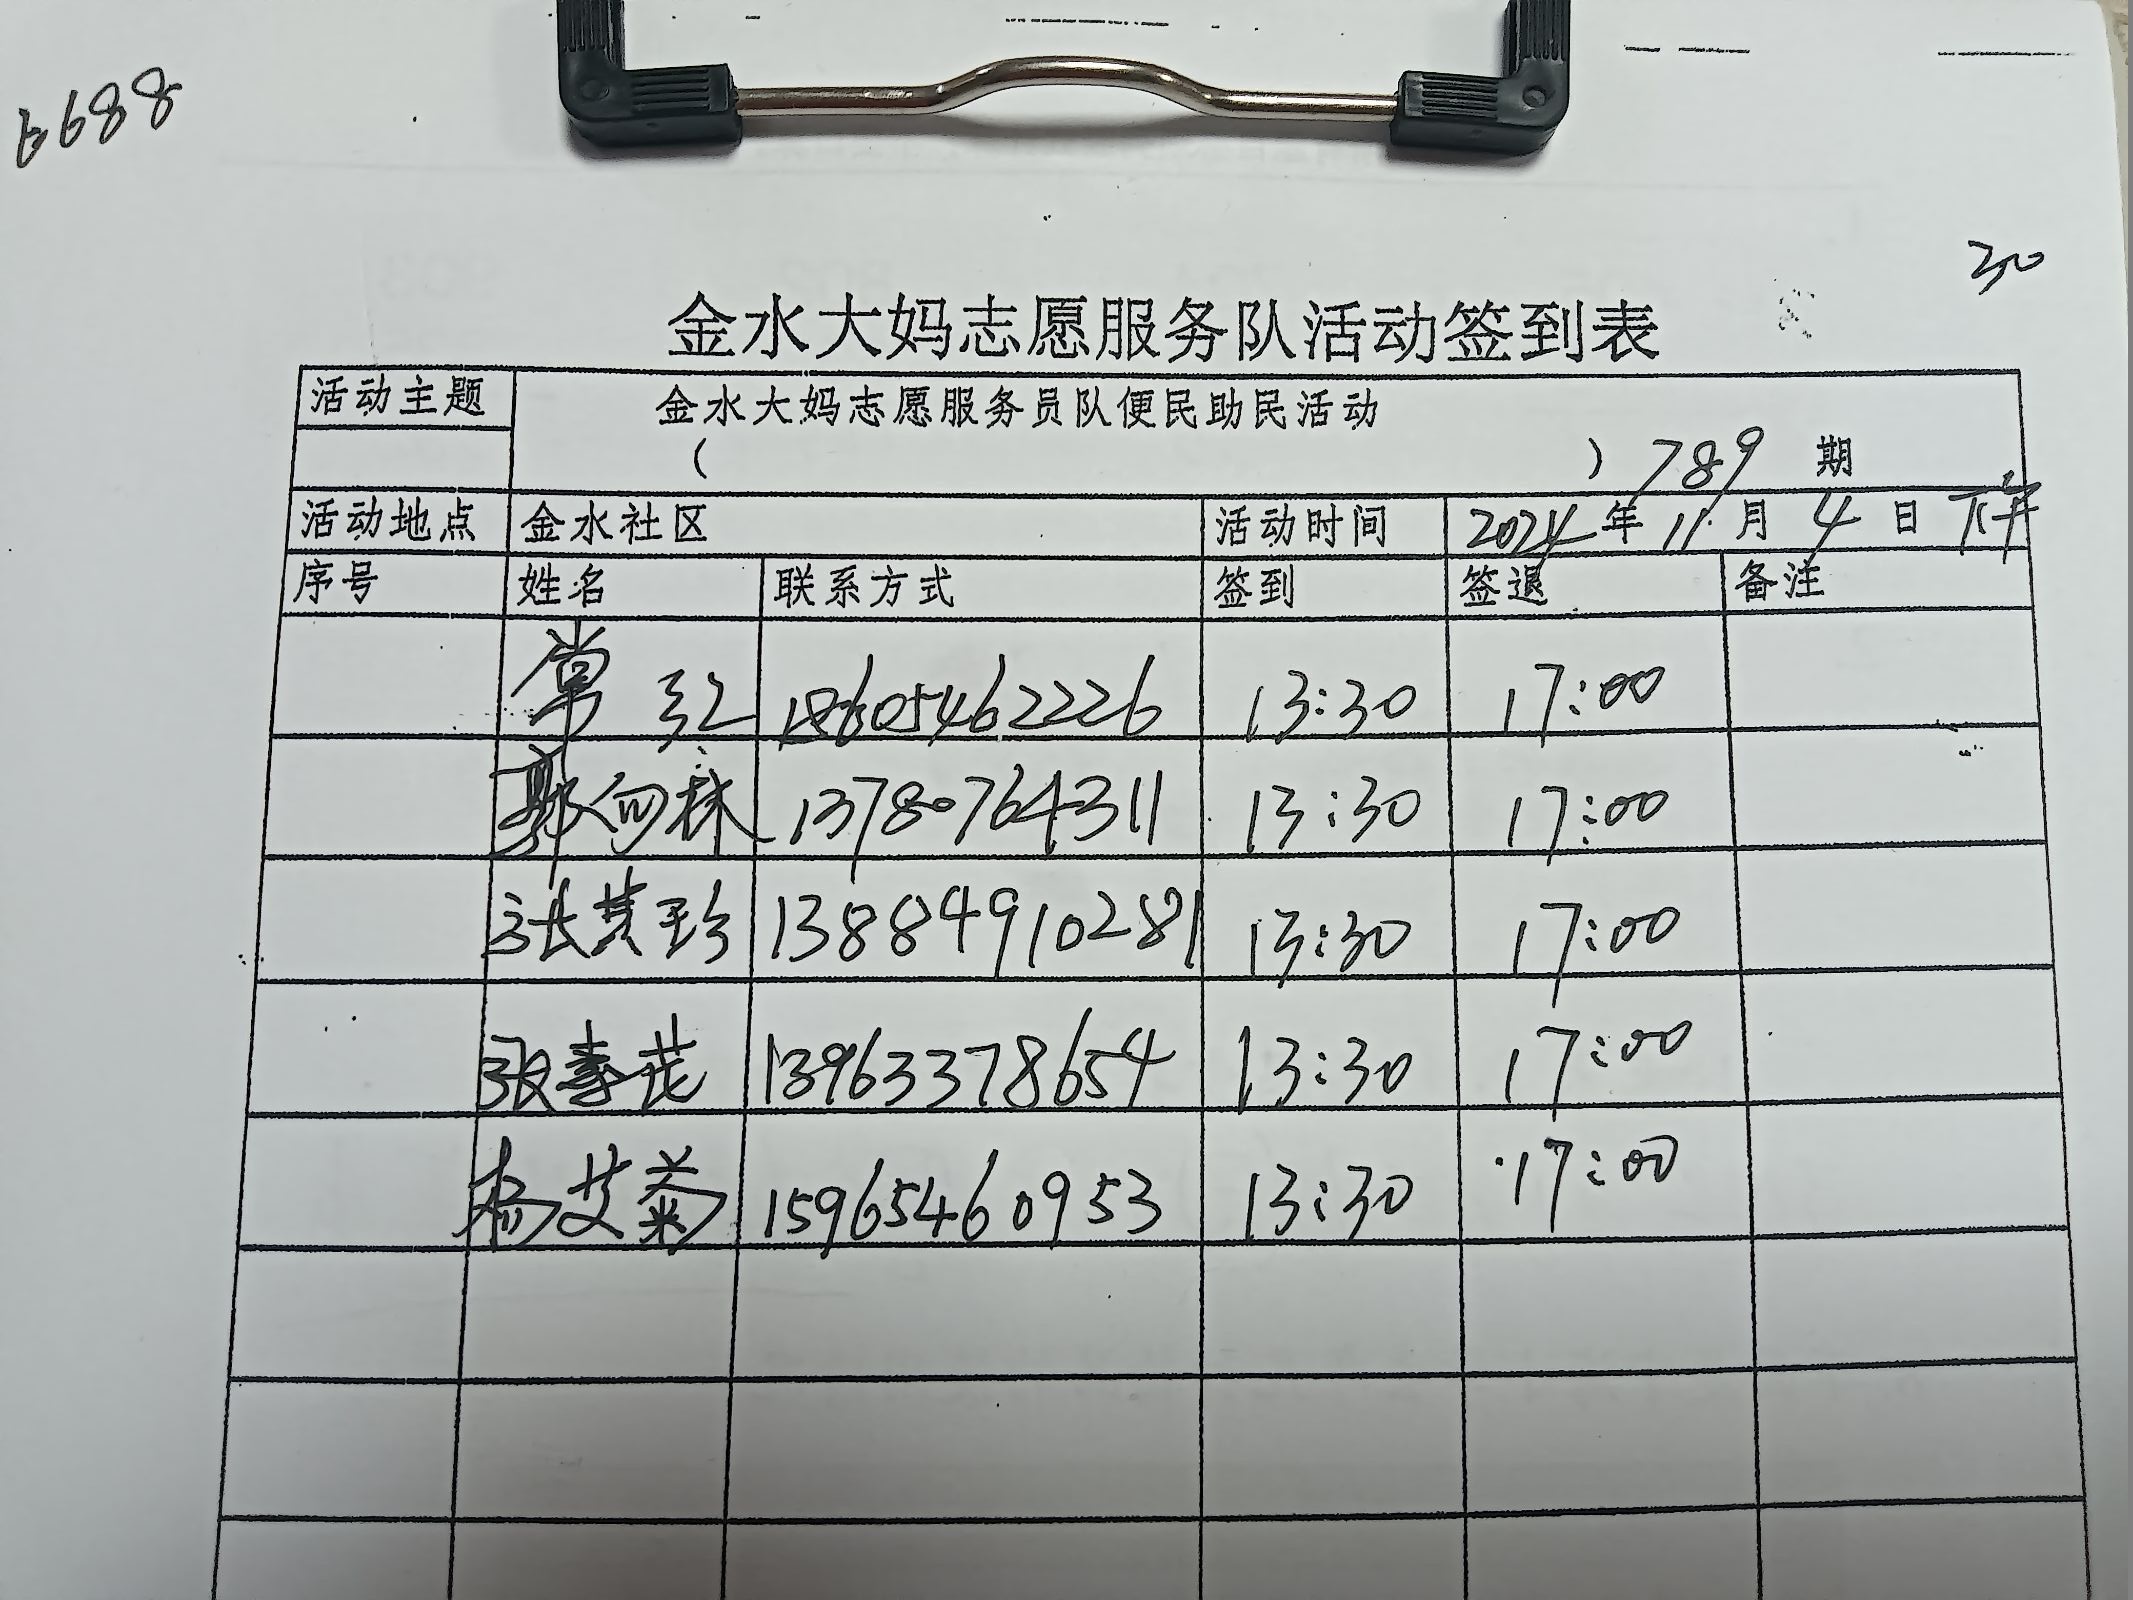 6688
30
金水大妈志愿服务队活动签到表
活动主题 金水大妈志愿服务员队便民助民活动
( ) 789 期
活动地点 金水社区 活动时间 2024 年 11 月 4 日 下午
序号 姓名 联系方式 签到 签退 备注
常红 18605462226 13:30 17:00
郭向林 13780764311 13:30 17:00
张其珍 13884910281 13:30 17:00
张春花 13963378654 13:30 17:00
杨艾菊 15965460953 13:30 17:00